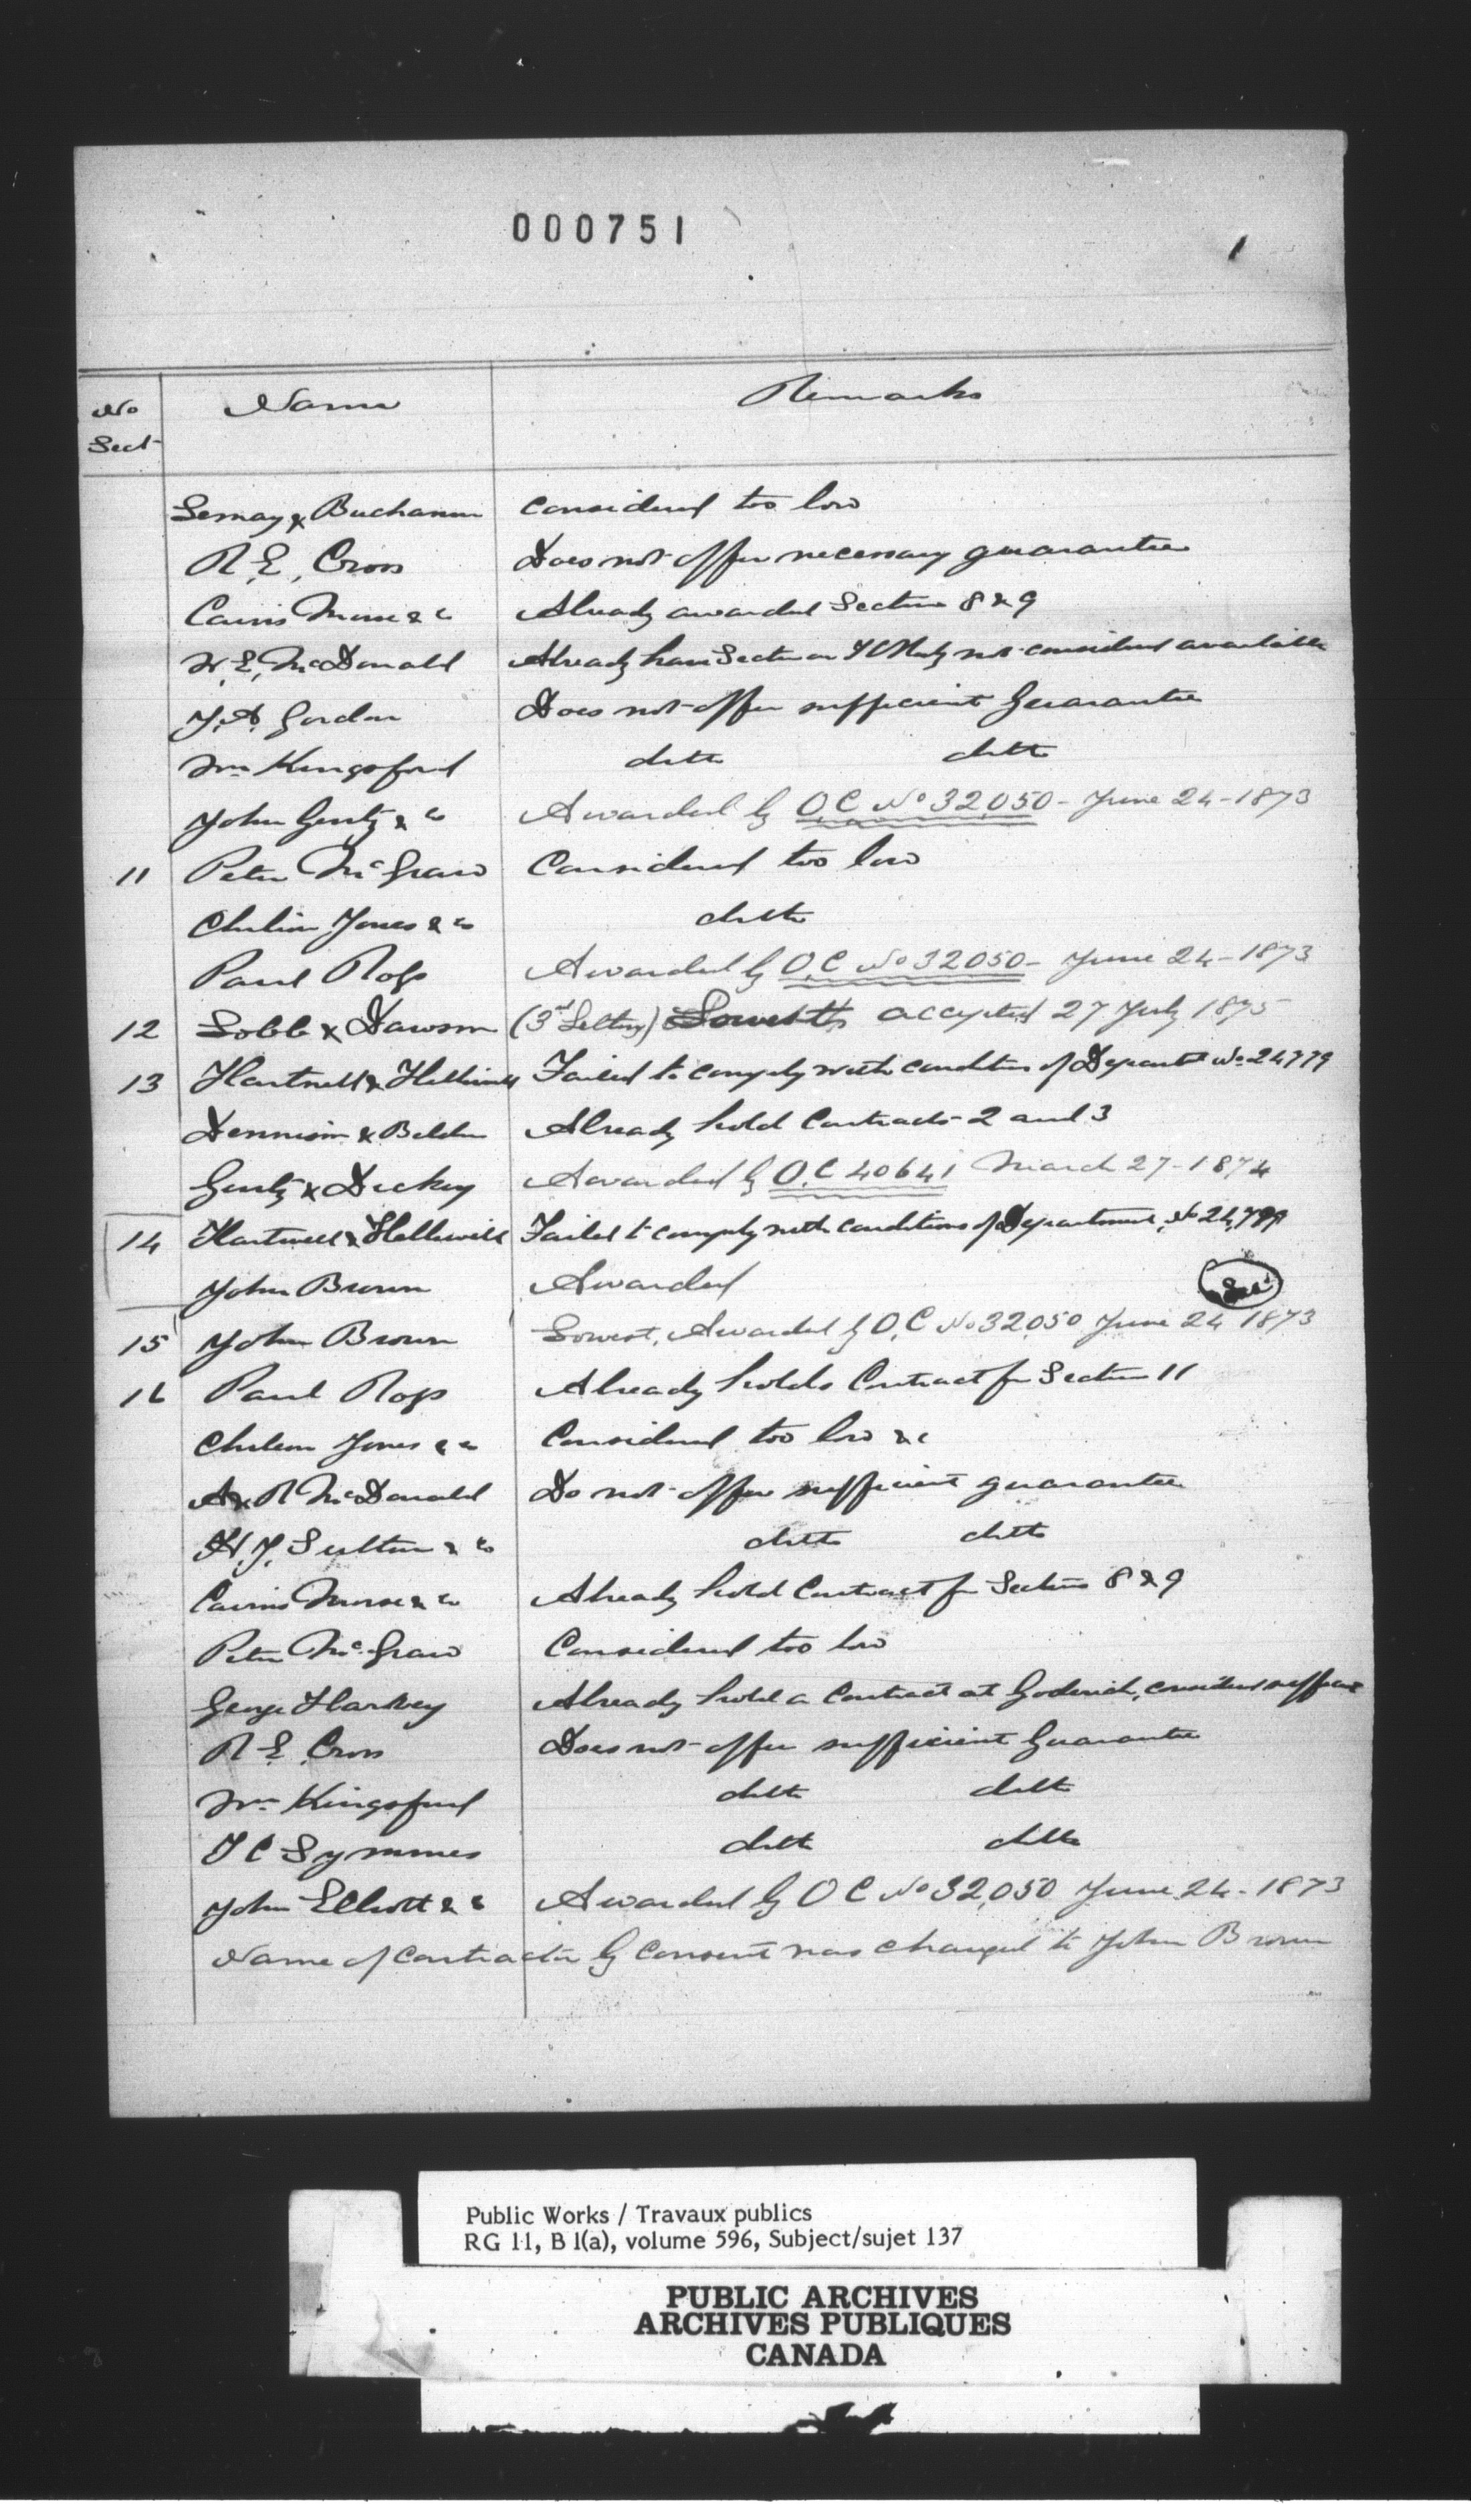 000751
1
No Sect Name Remarks
Lemay & Buchanan Considered too low
R. E. Cross Does not offer necessary guarantee
Cairns Morse & Co Already awarded Section 8 & 9
W. E. McDonald Already have Section on not considered available
J. A. Gordon Does not offer sufficient Guarantee
Wm Kingsford ditto ditto
John Gentz & Co Awarded by O.C No 32,050 - June 24 - 1873
11 Peter McGraw Considered too low
Chilion Jones & Co ditto
Paul Ross Awarded by O.C No 32050 - June 24 - 1873
12 Lobb & Dawson (3rd Letting) Lowest accepted 27 July 1875
13 Hartnell & Failed to comply with condition of Departmt No 24779
Dennison & Belden Already hold Contracts 2 and 3
Gentz & Dickey Awarded by O.C 40641 March 27 - 1874
14 Hartwell & Hellewill Failed to comply with conditions of Department, No
John Brown Awarded
15 John Brown Lowest, Awarded by O.C No 32,050 June 24 1873
16 Paul Ross Already holds Contract for Section 11
Chilion Jones & Co Considered too low &c
A & R McDonald Do not offer sufficient guarantee
H. J. Sutton & Co ditto ditto
Cairns Morse & Co Already hold Contract for Sections 8 & 9
Peter McGraw Considered too low
George Harvey Already hold a Contract at Goderich, considered
R E Cross Does not offer sufficient Guarantee
Wm Kingsford ditto ditto
T C Symmes ditto ditto
John Elliott & Co Awarded by O C No 32,050 June 24 - 1873
Name of Contractor by Consent was changed to John Brown
Public Works / Travaux publics
RG 11, B 1(a), volume 596, Subject/sujet 137
PUBLIC ARCHIVES
ARCHIVES PUBLIQUES
CANADA